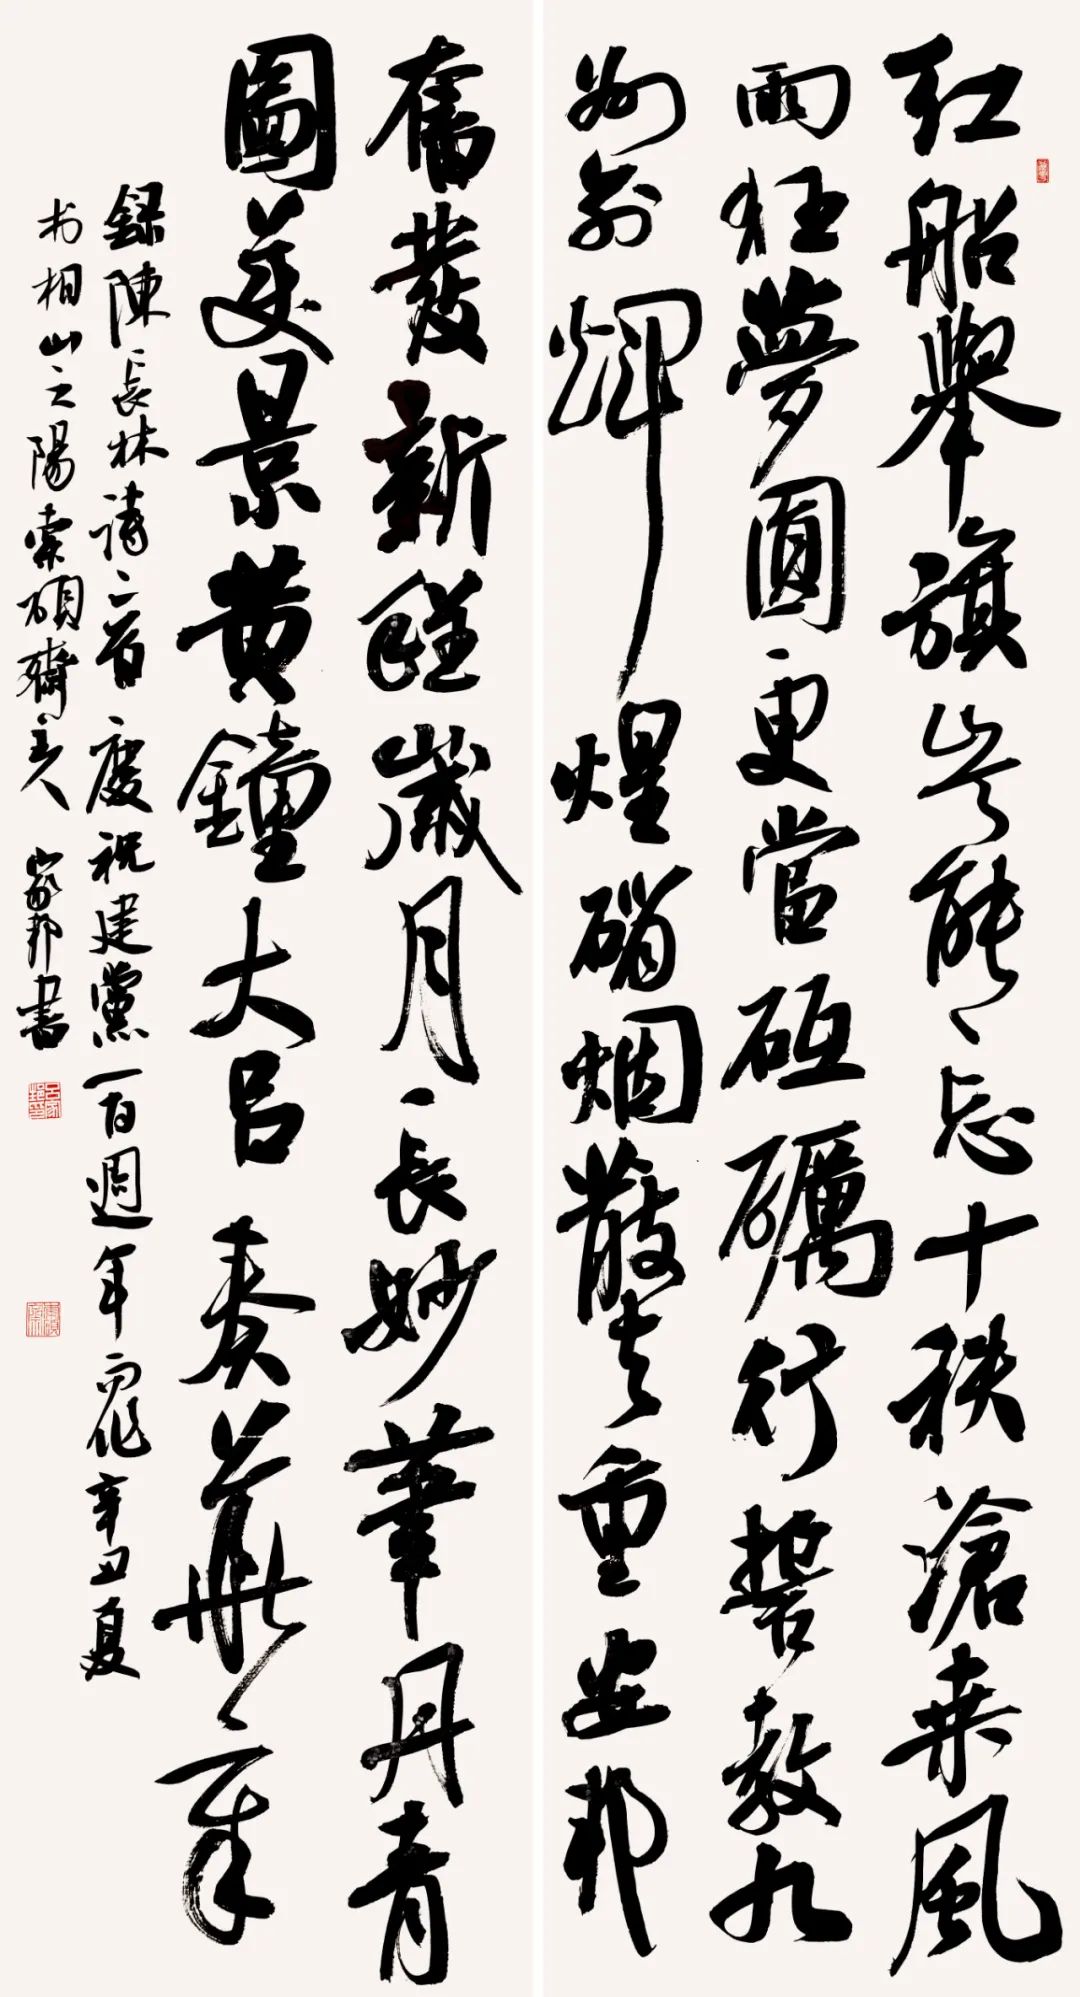 红船舉旗岂能忘十秩滄桑風
雨狂夢圓更當砥礪行誓教九
州輝煌硝烟散去重安邦
奮發新程歲月長妙筆丹青
圖美景黄鐘大吕奏華章
録陳長林詩二首慶祝建黨一百週年而作辛丑夏
於相山之陽索硯齋主人家邦書